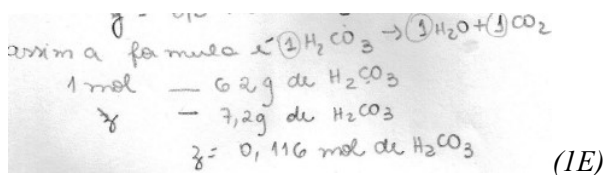 assim a formula é ①H₂CO₃ → ①H₂O + ①CO₂
1 mol — 62g de H₂CO₃
z — 7,2g de H₂CO₃
z = 0,116 mol de H₂CO₃
(1E)